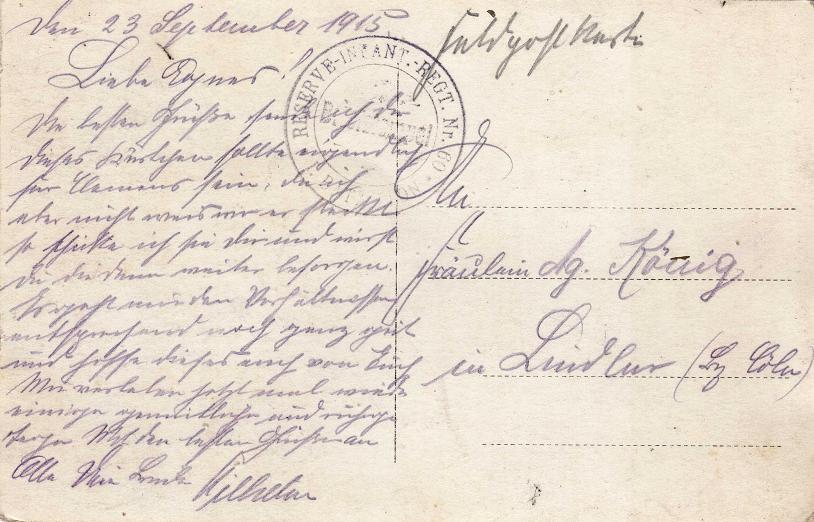 Den 23 September 1915
Liebe Agnes!
Die besten Grüße sende ich dir
dieses Kärtchen sollte eigendlich
für Clemens sein, da ich
aber nicht weis wo er steckt
so schicke ich sie dir und wirst
du die dann weiter besorgen.
Es geht mir den Verhältnissen
entsprechend noch ganz gut
und hoffe dieses auch von Euch
Wir verleben jetzt mal wieder
einige gemütliche und ruhige
Tage Mit den besten Grüßen an
Alle Dein Bruder
Wilhelm
Feldpostkarte
RESERVE-INFANT.-REGT. Nr. 60
An
Fräulein Ag. König
in Lindlar (Bz Cöln)